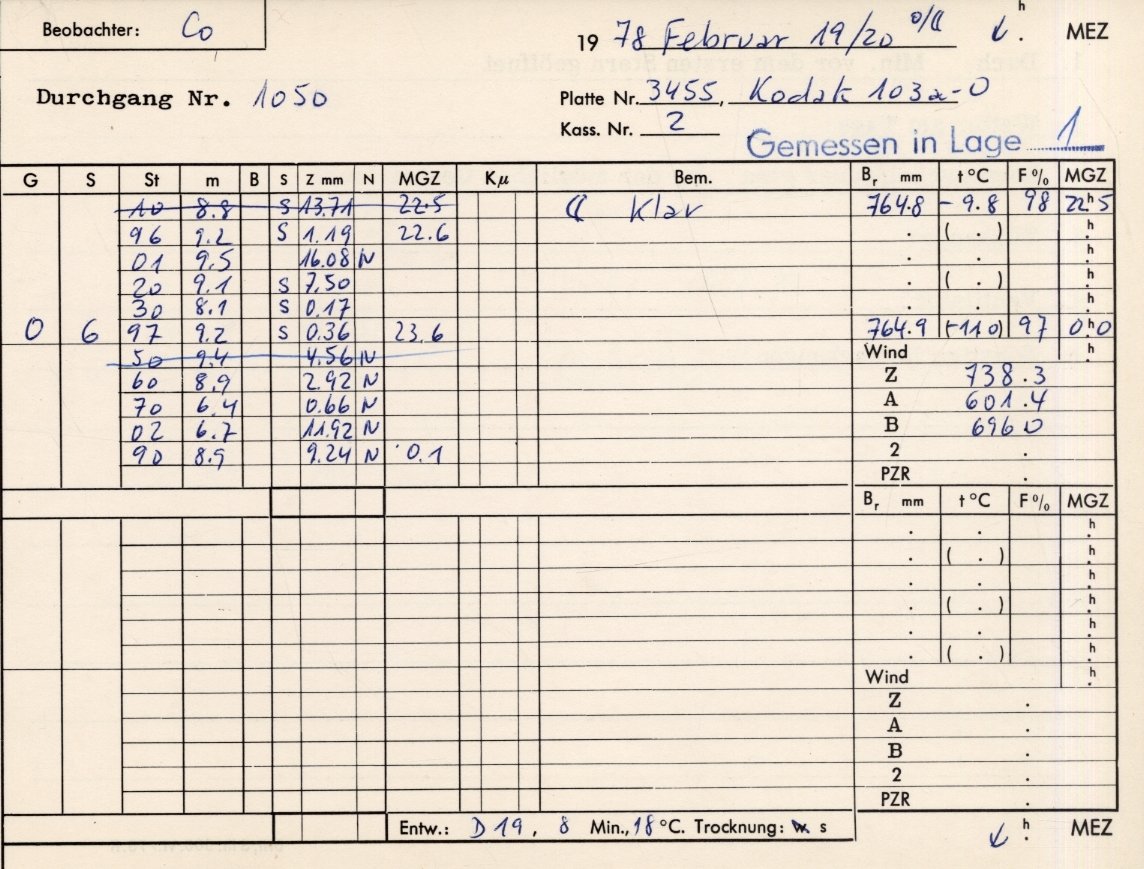 Beobachter: Co
19 78 Februar 19/20 h MEZ
Durchgang Nr. 1050
Platte Nr. 3455, Kodak 103a-O
Kass. Nr. 2
Gemessen in Lage 1
G S St m B S Z mm N MGZ Kμ Bem. Br mm t °C F % MGZ
10 8.8 S 13.71 22.5 Klar 764.8 -9.8 98 22h5
96 9.2 S 1.19 22.6 . ( . ) h
01 9.5 16.08 N . . h
20 9.1 S 7.50 . ( . ) h
30 8.1 S 0.17 . . h
0 6 97 9.2 S 0.36 23.6 764.9 (-11 0) 97 0h0
50 9.4 4.56 N Wind h
60 8.9 2.92 N Z 738.3
70 6.4 0.66 N A 601.4
02 6.7 11.92 N B 696 0
90 8.9 9.24 N 0.1 2 .
PZR .
Br mm t °C F % MGZ
. . h
. ( . ) h
. . h
. ( . ) h
. . h
. ( . ) h
Wind h
Z .
A .
B .
2 .
PZR .
Entw.: D 19, 8 Min., 18 °C. Trocknung: s
h MEZ